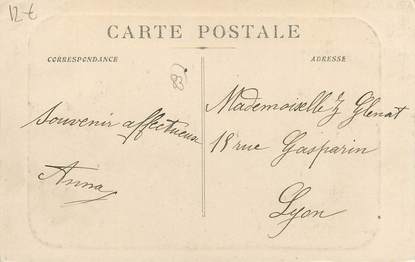 12 €
CARTE POSTALE
CORRESPONDANCE
ADRESSE
83
Souvenir affectueux
Anna
Mademoiselle Z Glenat
18 rue Gasparin
Lyon